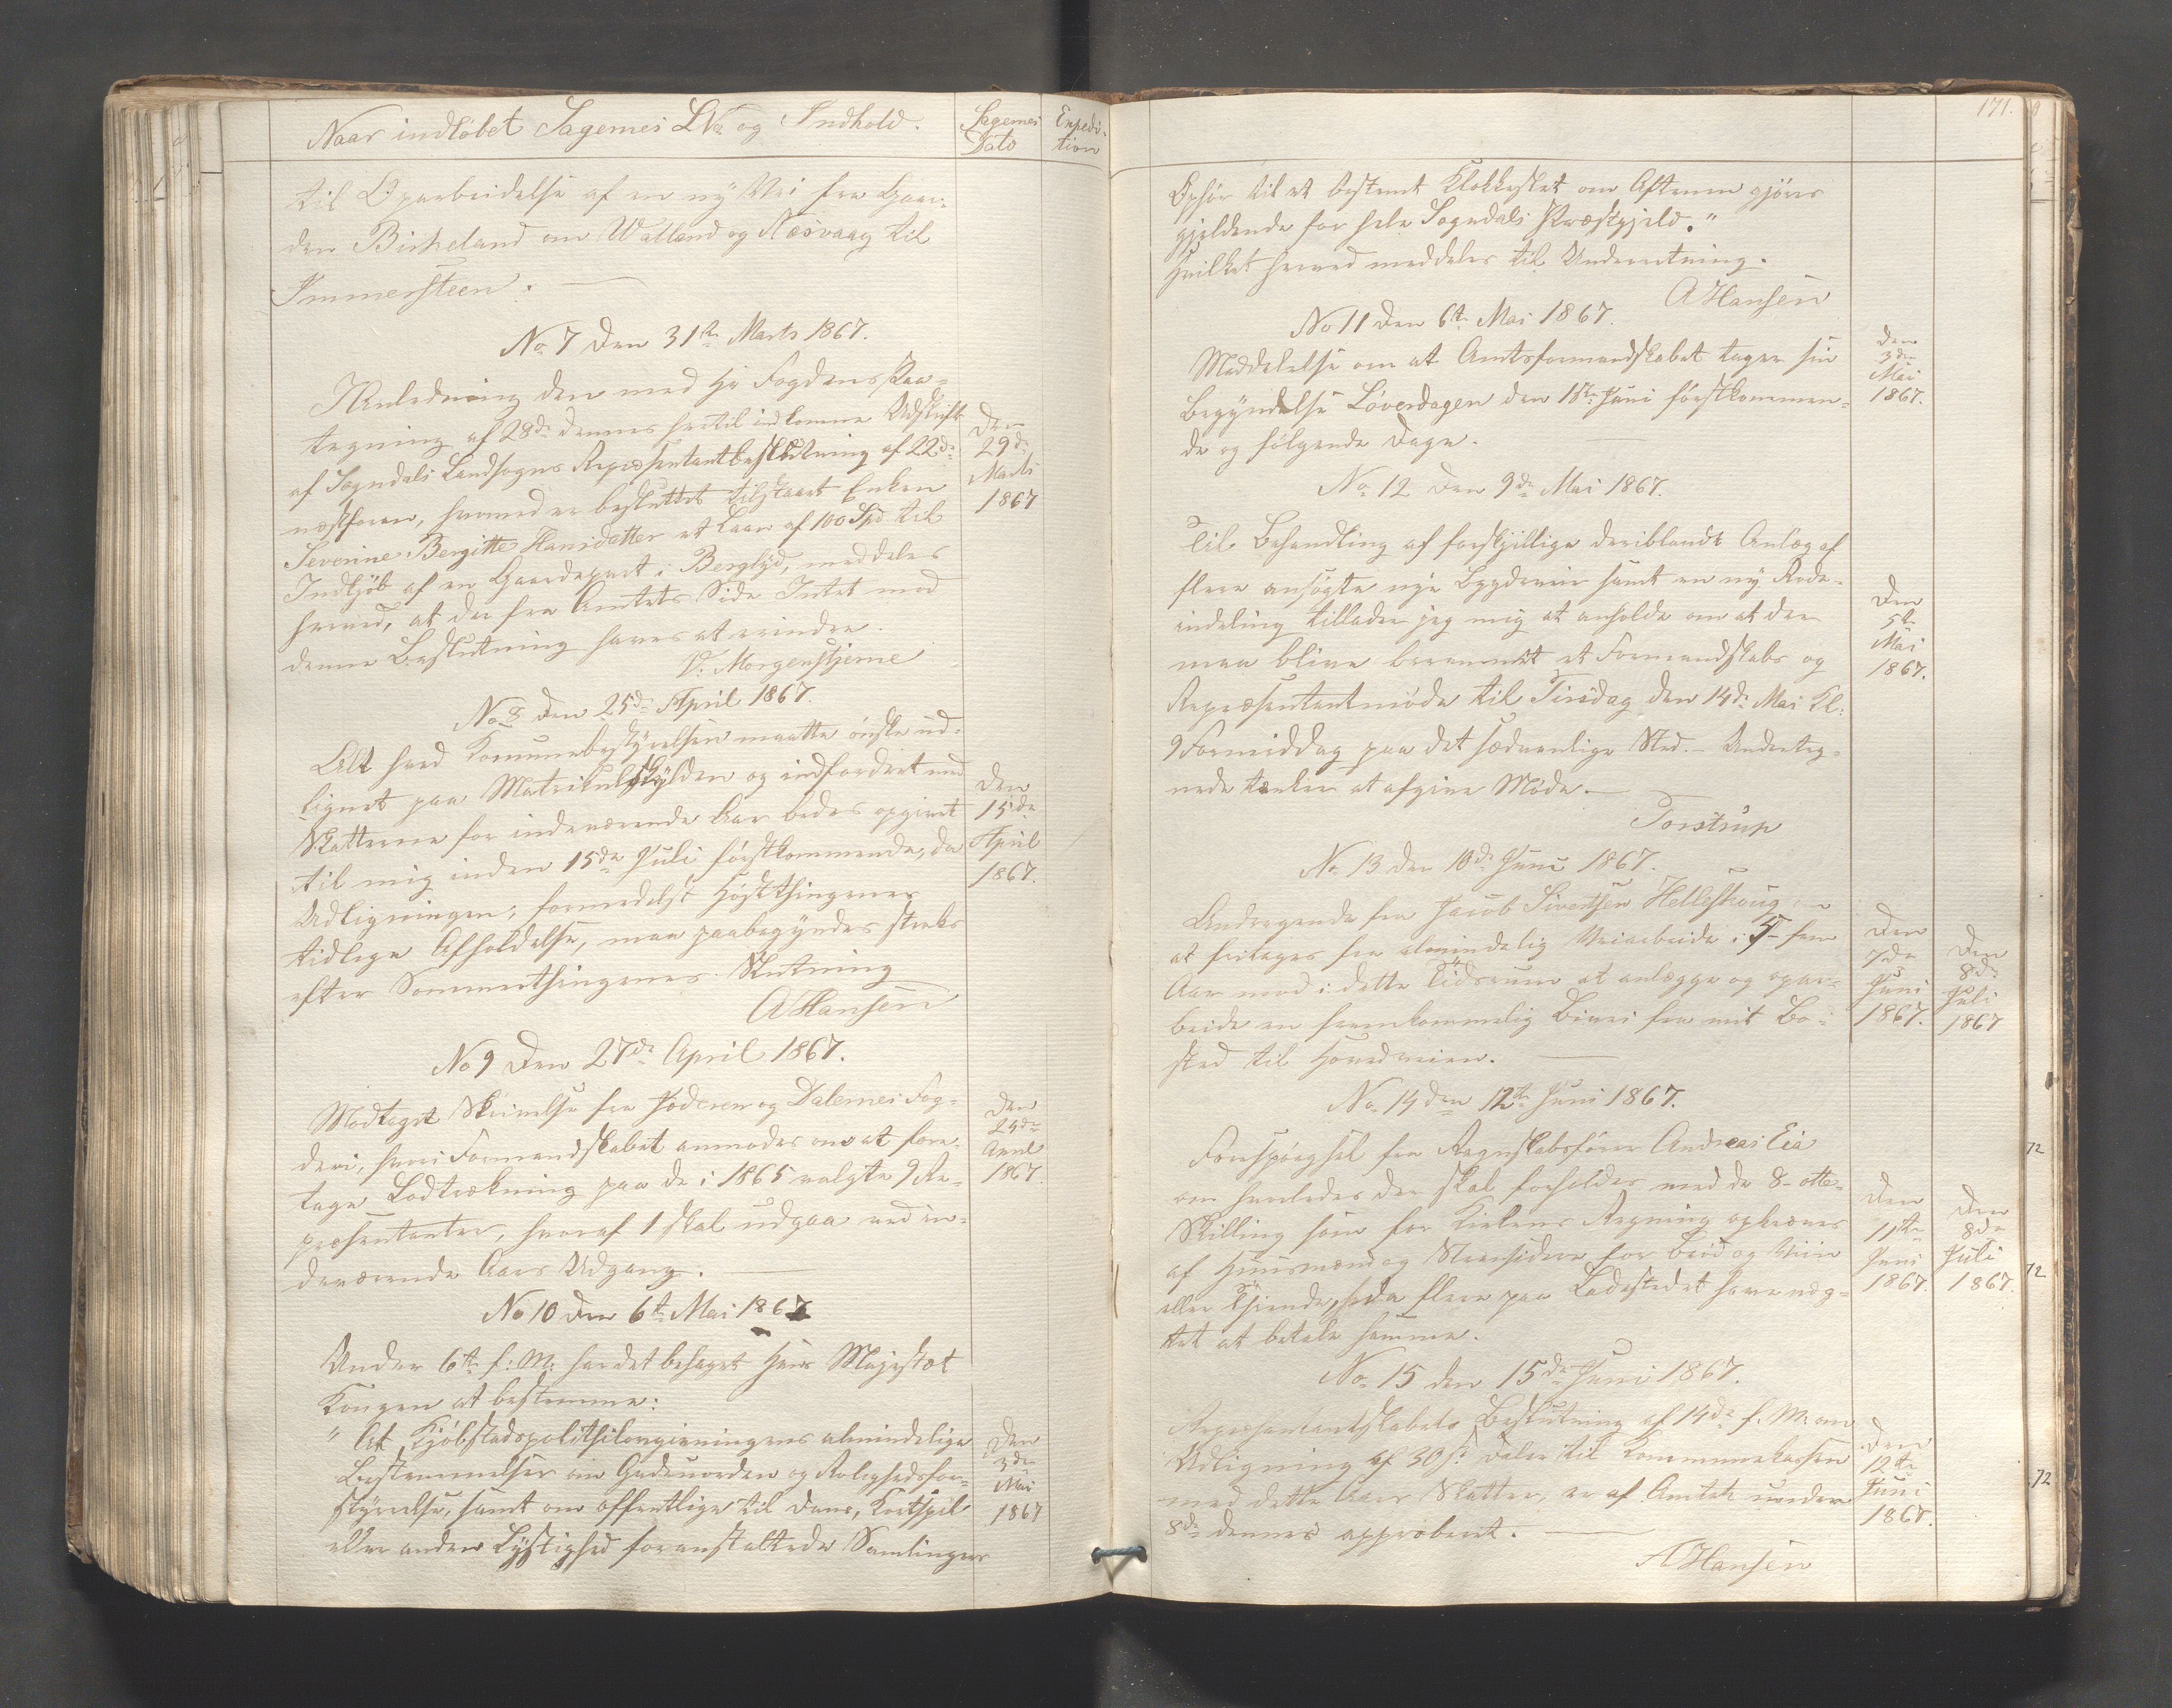 Naar indløbet Sagernes LNo og Indhold.
Sagernes Dato
Expedi-
tion
til Oparbeidelse af en ny Vei fra Gaar-
den Birkeland om Walland og Næsvaag til
Immersteen.
No 7 Den 31te Marts 1867.
I Anledning den med Hr Fogdens Paa-
tegning af 28de dennes hertil indkomne Udskrift
af Sogndals Landsogns Repræsentantbeslutning af 22de
næstforan, hvorved er besluttet tilstaaet Enken
Severine Bergitte Hansdatter et Laan af 100 Spd til
Indkjøb af en Gaardepart i Berglyd, meddeles
herved, at der fra Amtets Side Intet mod
denne Beslutning haves at erindre.
V. Morgenstjerne
Den
29de
Marts
1867
No 8 Den 25de April 1867.
Alt hvad Kommunebestyrelsen maatte ønske ud-
lignet paa Matrikulskylden og indfordret med
Skatterne for indeværende Aar bedes opgivet
til mig inden 15de Juli førstkommende, da
Udligningen, formedelst Høstthingenes
tidlige Afholdelse, maa paabegyndes straks
efter Sommerthingenes Slutning
A Hansen
Den
15de
April
1867.
No 9 Den 27de April 1867.
Modtaget Skrivelse fra Jæderen og Dalernes Fog-
deri, hvori Formandskabet anmodes om at fore-
tage Lodtrækning paa de i 1865 valgte 9 Re-
præsentanter, hvoraf 1 skal udgaa ved in-
deværende Aars Udgang.
Den
24de
April
1867.
No 10 Den 6te Mai 1867
Under 6te f: M: har det behaget Hans Majestæt
Kongen at bestemme:
" At Kjøbstadspolitilovgivningens almindelige
Bestemmelser om Gadeuorden og Rolighedsfor-
styrrelse, samt om offentlige til Dans, Kortspil
eller anden Lystighed foranstaltede Samlingers
Den
3de
Mai
1867
171.
Ophør til et bestemt Klokkeslet om Aftenen gjøres
gjeldende for hele Sogndals Præstgjeld."
Hvilket herved meddeles til Underretning.
A Hansen
No 11 Den 6te Mai 1867.
Meddelelse om at Amtsformandskabet tager sin
Begyndelse Løverdagen den 15te Juni førstkommen-
de og følgende Dage.
Den
3de
Mai
1867.
No 12 Den 9de Mai 1867.
Til Behandling af forskjellige deriblandt Anlæg af
flere ansøgte nye Bygdeveie samt en ny Rode-
inddeling tillader jeg mig at anholde om at der
maa blive berammet et Formandskabs og
Repræsentantmøde til Tirsdag den 14de Mai Kl:
9 Formiddag paa det sædvanlige Sted. - Underteg-
nede tænker at afgive Møde.
Torstrup
Den
5te
Mai
1867.
No 13 Den 10de Juni 1867.
Andragende fra Jacob Sivertsen Helleskoug om
at fritages fra almindelig Veiarbeide i 5- fem
Aar mod i dette Tidsrum at anlægge og opar-
beide en fremkommelig Bivei fra mit Bo-
sted til Hovedveien.
Den
7de
Juni
1867.
Den
8de
Juli
1867
No 14 Den 12te Juni 1867.
Forespørgsel fra Regnskabsfører Andreas Eia
om hvorledes der skal forholdes med de 8- otte-
Skilling som for Kirkens Regning opkræves
af Huusmænd og Strandsidere for Brød og Viin
eller Tiende, da flere paa Ladestedet have næg-
tet at betale samme.
Den
11te
Juni
1867.
Den
8de
Juli
1867.
No 15 Den 15de Juni 1867.
Repræsentantskabets Beslutning af 14de f. M. om
Udligning af 30 sp. Daler til Kommunekassen
med dette Aars Skatter, er af Amtet under
8de dennes approberet.
A Hansen
Den
12te
Juni
1867.
72
72
72